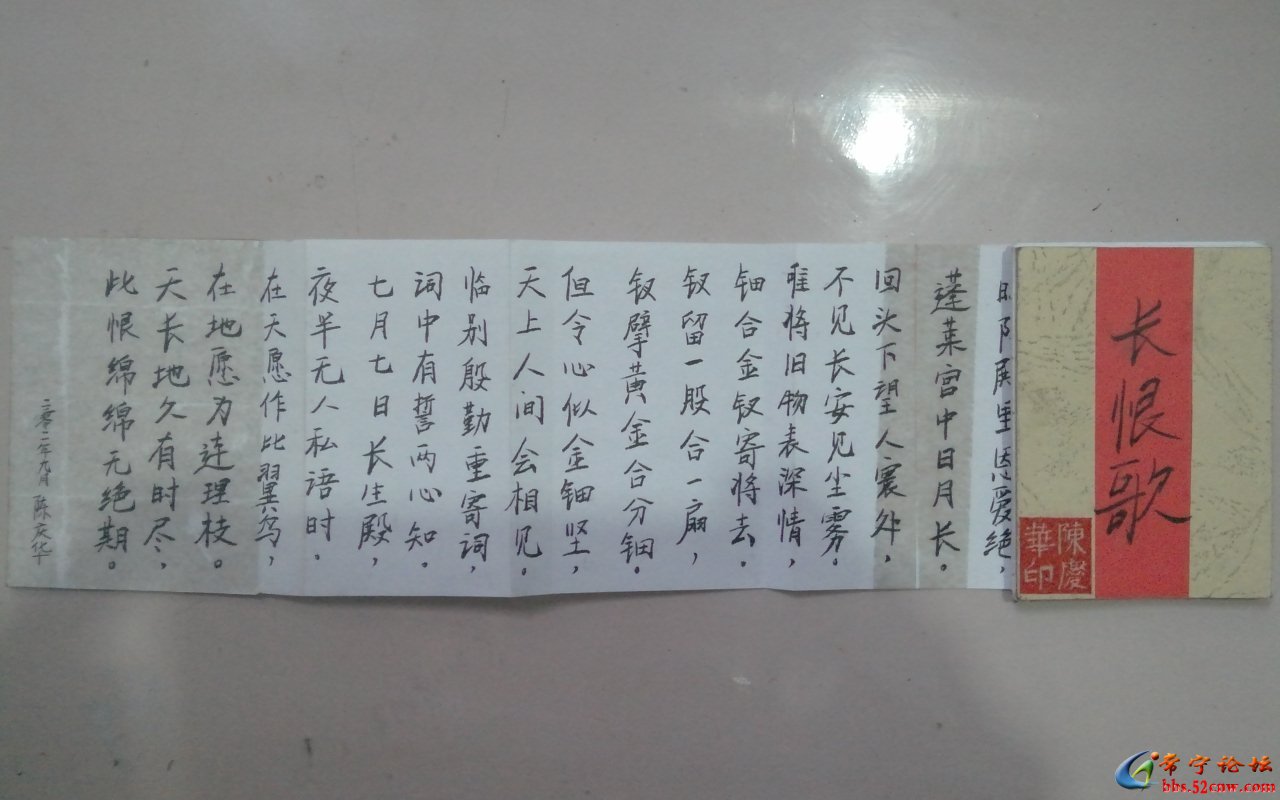 长恨歌
陳慶華印
里恩爱绝，
蓬莱宫中日月长。
回头下望人寰处，
不见长安见尘雾。
唯将旧物表深情，
钿合金钗寄将去。
钗留一股合一扇，
钗擘黄金合分钿。
但令心似金钿坚，
天上人间会相见。
临别殷勤重寄词，
词中有誓两心知。
七月七日长生殿，
夜半无人私语时。
在天愿作比翼鸟，
在地愿为连理枝。
天长地久有时尽，
此恨绵绵无绝期。
二零一二年九月 陈庆华
常宁论坛
bbs.52cnw.com